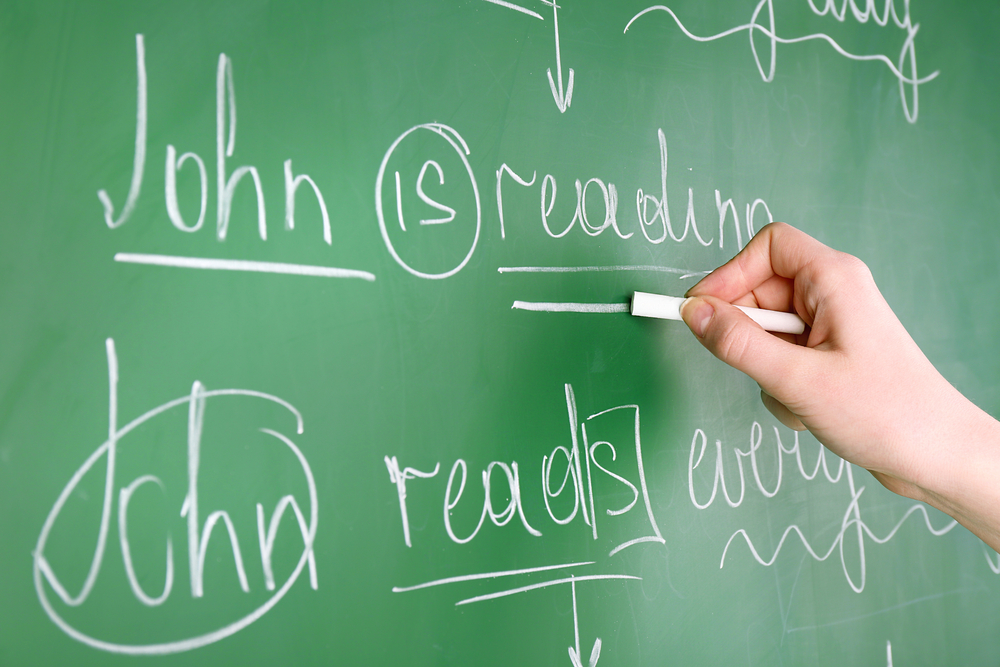 John is reading
John reads every